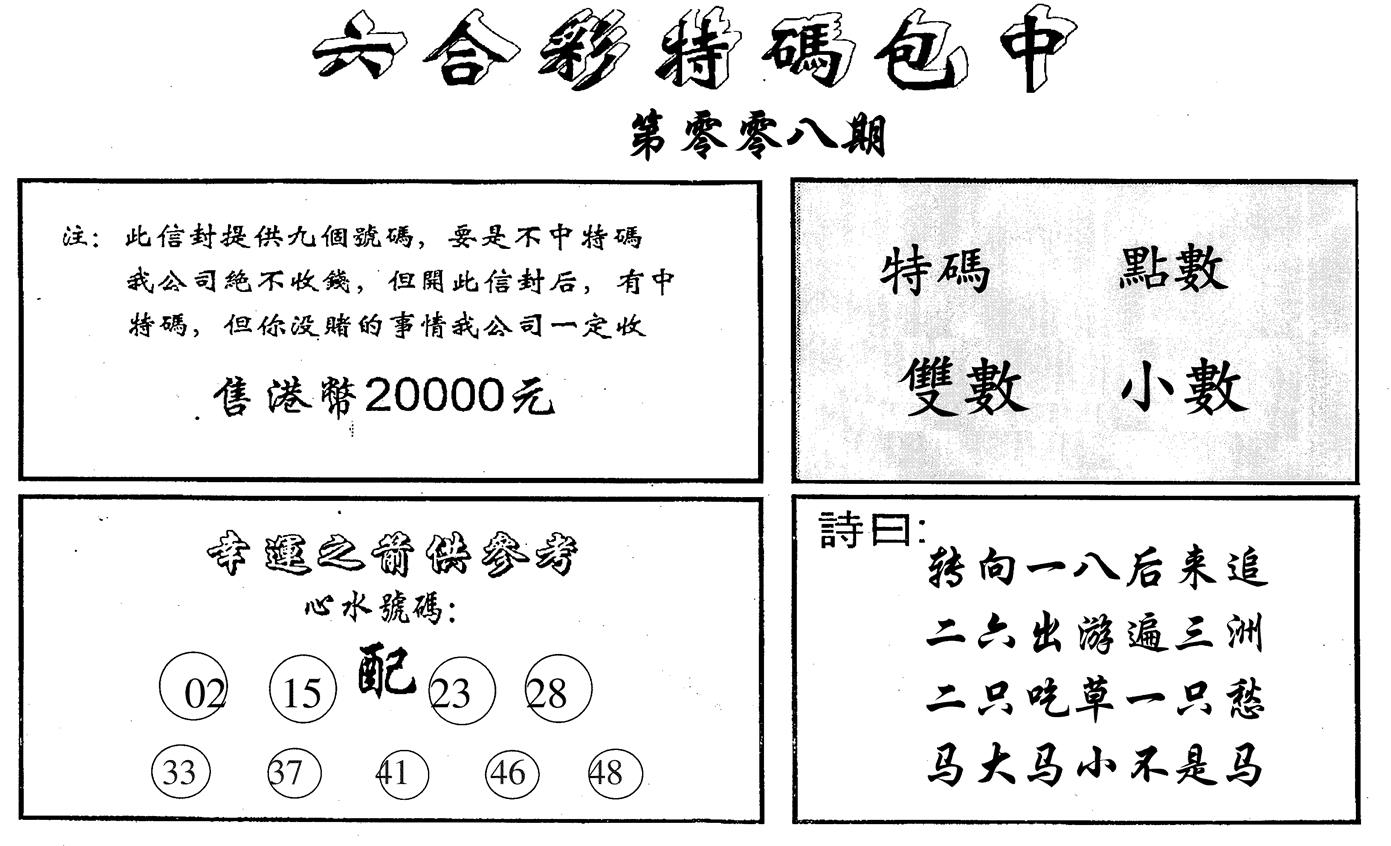 六合彩特碼包中
第零零八期
注：此信封提供九個號碼，要是不中特碼
我公司絶不收錢，但開此信封后，有中
特碼，但你没賭的事情我公司一定收
售港幣20000元
特碼 點數
雙數 小數
幸運之箭供參考
心水號碼：
02 15 配 23 28
33 37 41 46 48
詩曰：
转向一八后来追
二六出游遍三洲
二只吃草一只愁
马大马小不是马